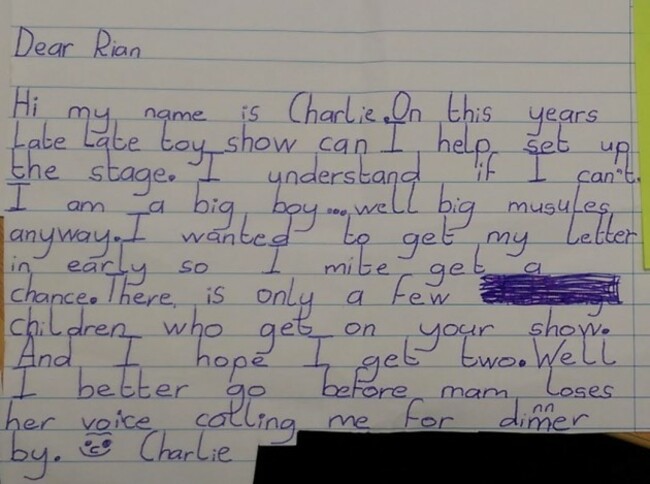 Dear Rian
Hi my name is Charlie. On this years
Late Late toy show can I help set up
the stage. I understand if I can't.
I am a big boy... well big musules
anyway. I wanted to get my letter
in early so I mite get a
chance. There is only a few
children who get on your show.
And I hope I get two. Well
I better go before mam loses
her voice calling me for dinner
by. Charlie